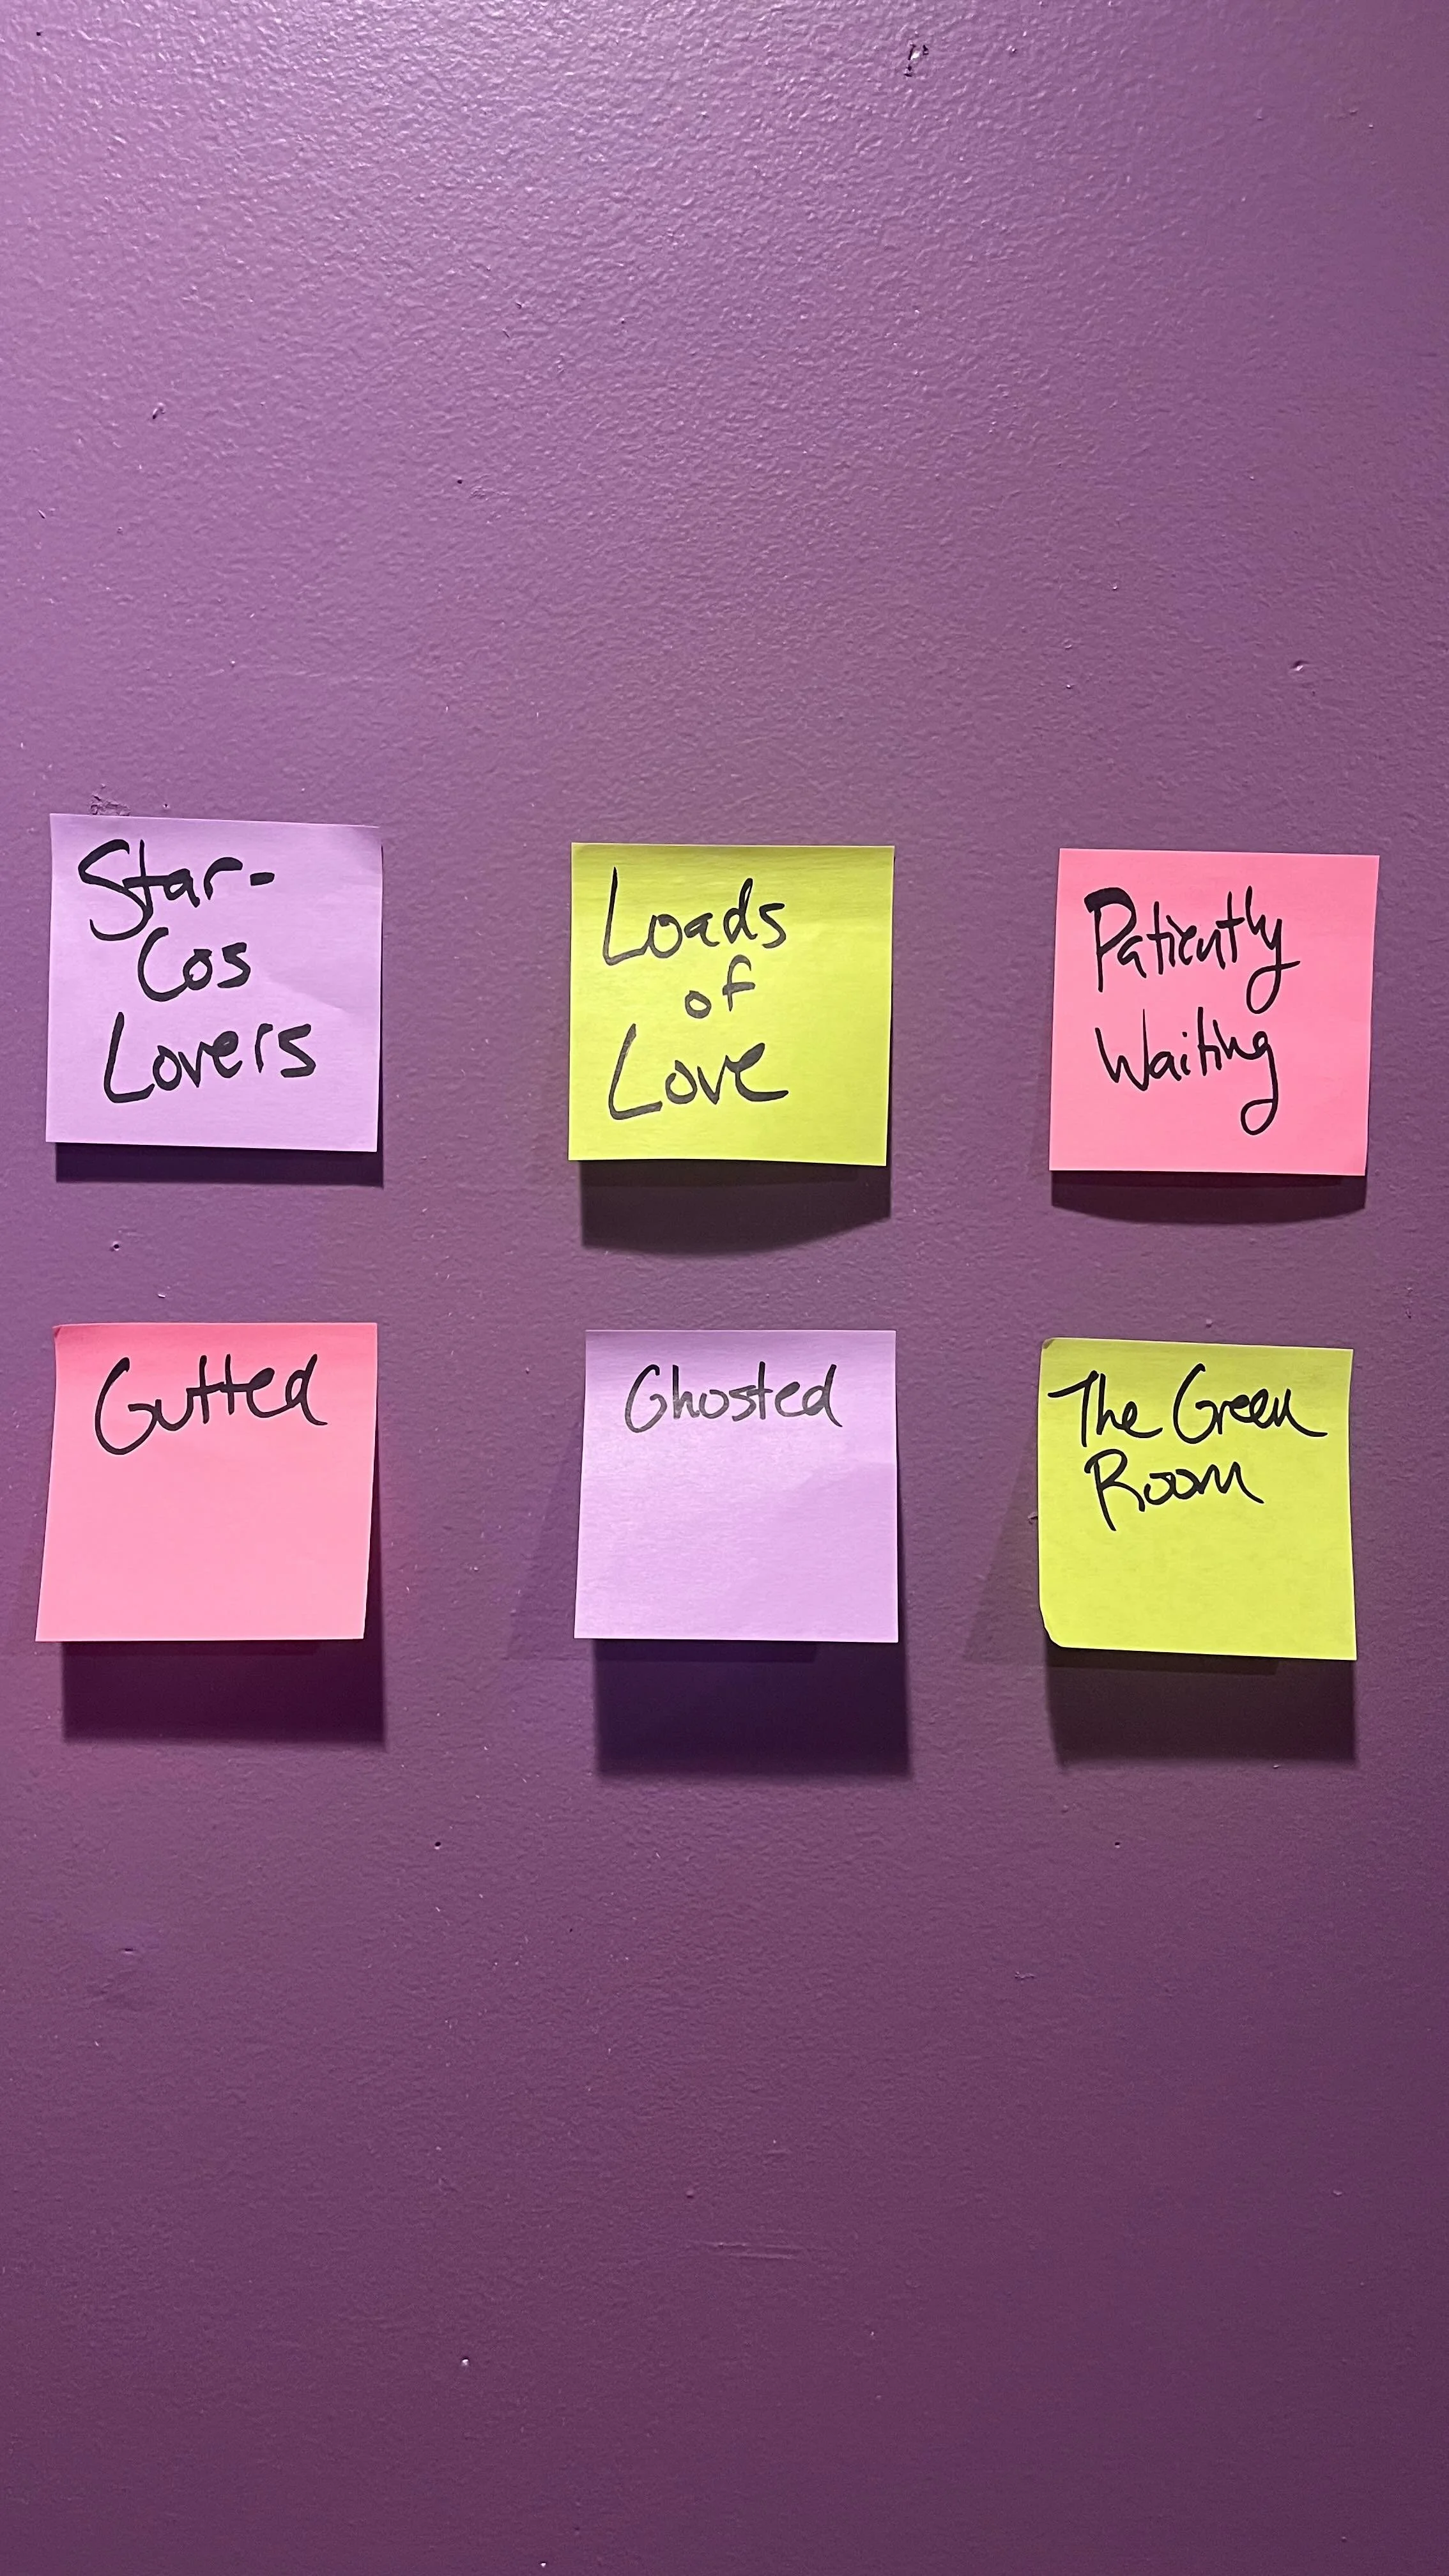 Star-
Cos
Lovers
Loads
of
Love
Patiently
Waiting
Gutted
Ghosted
The Green
Room